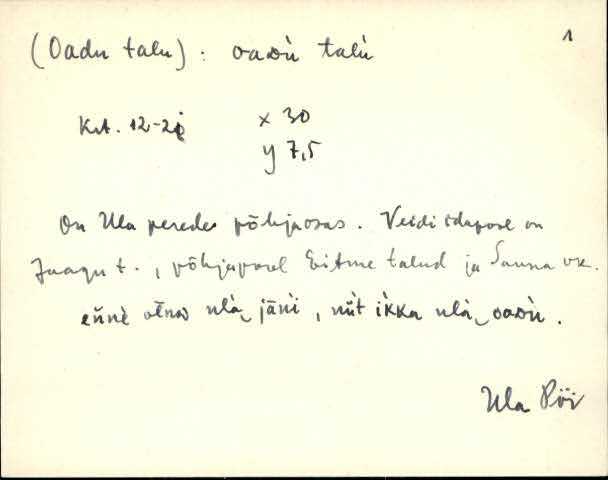 (Oadu talu) : oaᴅù talù 1
Krt. 12-2i x 30
y 7,5
On Ula peredes põhjaosas. Veidi idapool on
Jaagu t., põhjapool Eitme talud ja Sauna vk.
eǹnè olnaᴅ ulà‿jānì, nǜt ìkka ulà‿oaᴅù.
Ula Pöi